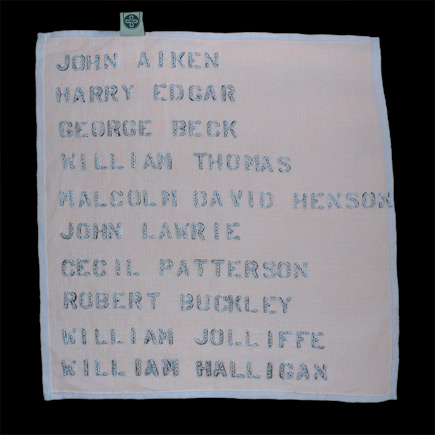 JOHN AIKEN
HARRY EDGAR
GEORGE BECK
WILLIAM THOMAS
MALCOLM DAVID HENSON
JOHN LAWRIE
CECIL PATTERSON
ROBERT BUCKLEY
WILLIAM JOLLIFFE
WILLIAM HALLIGAN